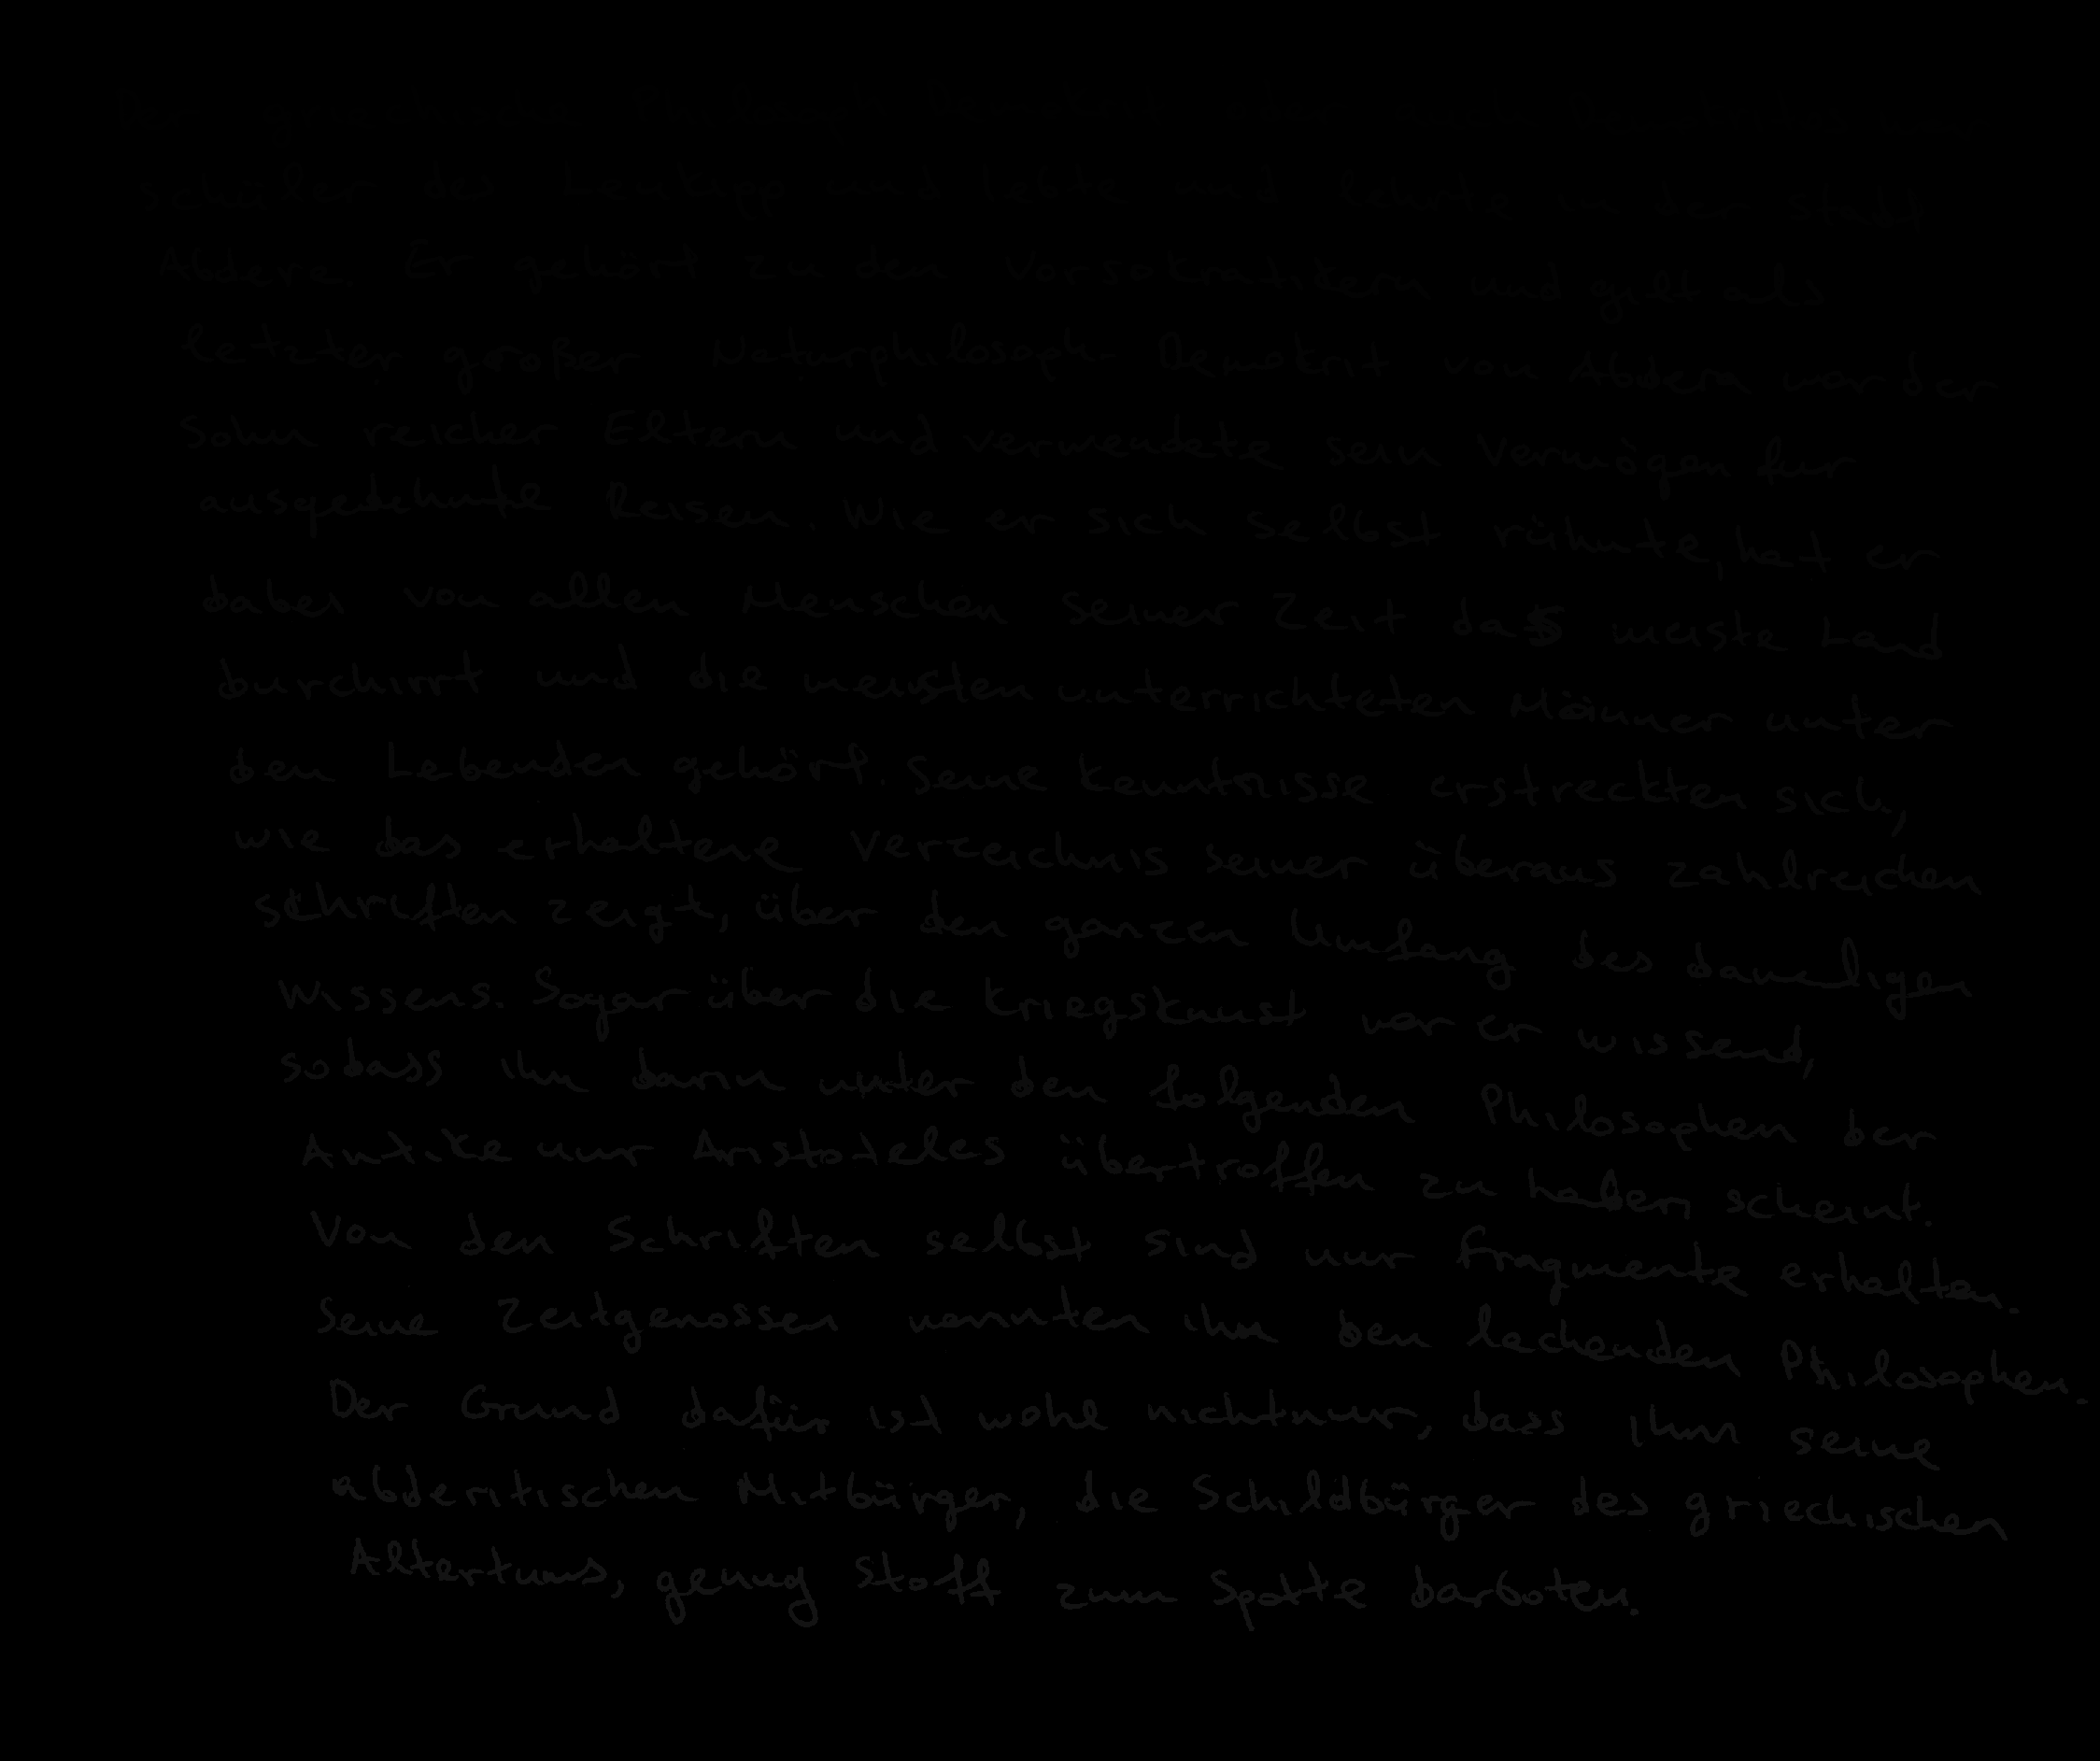 Der griechische Philosoph Demokrit
schüler des Leukipp und lebte und lehrte in der Stadt
Abdera. Er gehört zu den Vorsokratikern und gilt als
letzter großer Naturphilosoph. Demokrit von Abdera war der
Sohn reicher Eltern und verwendete sein Vermögen für
ausgedehnte Reisen. Wie er sich selbst rühmte, hat er
dabei von allen Menschen seiner Zeit das meiste Land
durchirrt und die meisten unterrichteten Männer unter
den Lebenden gehört. Seine Kenntnisse erstreckten sich,
wie das erhaltene Verzeichnis seiner überaus zahlreichen
Schriften zeigt, über den ganzen Umfang des damaligen
Wissens. Sogar über die Kriegskunst war er wissend,
sodass ihn darin unter den folgenden Philosophen der
Antike nur Aristoteles übertroffen zu haben scheint.
Von den Schriften selbst sind nur Fragmente erhalten.
Seine Zeitgenossen nannten ihn den lachenden Philosophen.
Der Grund dafür ist wohl nicht nur, dass ihm seine
abderitischen Mitbürger, die Schildbürger des griechischen
Altertums, genug Stoff zum Spotte darboten.